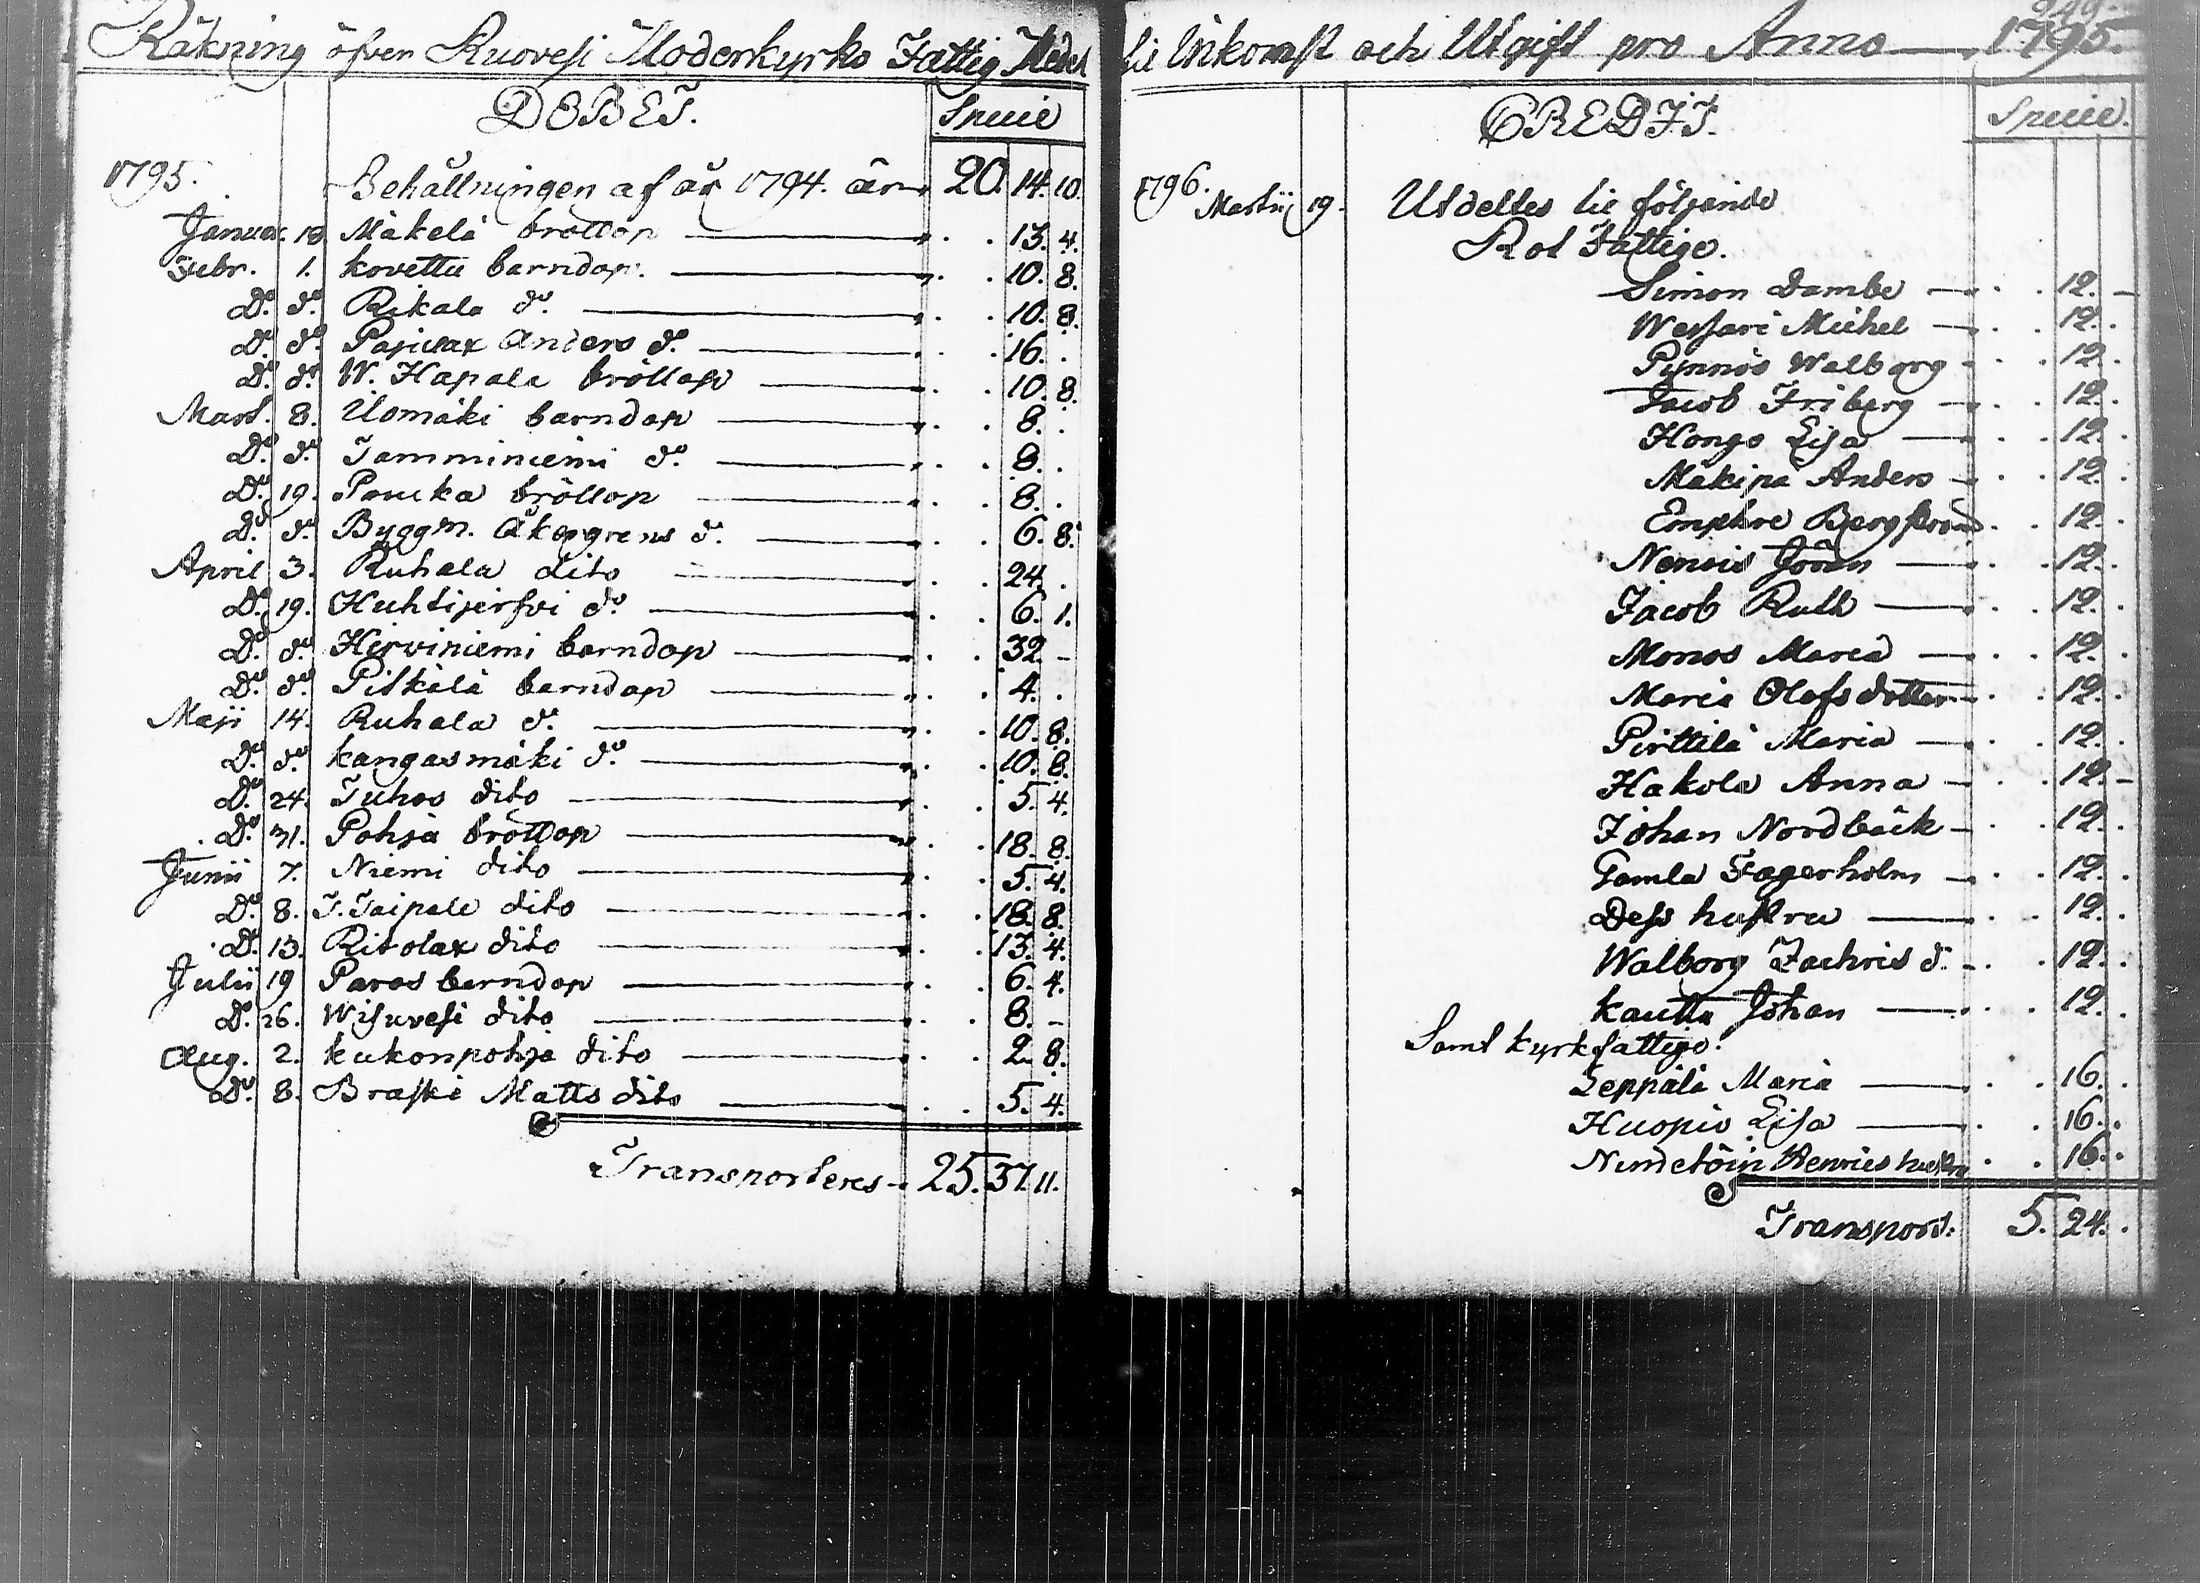 Räkning öfver Ruovesi Moderkyrko Fattig Medel
DEBET.
Specie
1795. Behållningen af år 1794. är 20. 14. 10.
Januar. 18 Mäkelä bröllop 13. 4.
Febr. 1. kovettu barndop. 10. 8.
D.o d.o Rikala d.o 10. 8.
D.o d.o Pajulax Anders d.o 16. .
D.o d.o W. Hapala bröllop 10. 8.
Mart. 8. Uomäki barndop 8. .
D.o d.o Tamminiemi d.o 8. .
D.o 19. Paucka bröllop 8. .
D.o d.o Byggm. Åkergrens d.o 6. 8.
April 3. Ruhala dito 24. .
D.o 19. Huhtijerfvi d.o 6. 1.
D.o d.o Hirviniemi barndop 32. -
D.o d.o Pitkälä barndop 4. .
Maji 14. Ruhala d.o 10. 8.
D.o d.o kangasmäki d.o 10. 8.
D.o 24. Tuhos dito 5. 4.
D.o 31. Pohja bröllop 18. 8.
Junii 7. Niemi dito 5. 4.
D.o 8. T. Taipale dito 18. 8.
D.o 13. Ritolax dito 13. 4.
Julii 19 Paros barndop 6. 4.
D.o 26. Wisuvesi dito 8. -
Aug. 2. kukonpohja dito 2. 8.
D.o 8. Braski Matts dito 5. 4.
Transporteres 25. 37. 11.
249.
til Inkomst och Utgift pro Anno 1795.
CREDIT.
Specie.
1796. Martii 19. Utdeltes til följande
Rot Fattige.
Simon Dambe 12. -
Wessari Michel 12. .
Pynnös Walborg 12. .
Jacob Friberg 12. .
Hongo Lisa 12. .
Mäkipä Anders 12. .
Enkre Bergström 12. .
Nenois Jöran 12. .
Jacob Ruth 12. .
Monos Maria 12. .
Maria Olofsdotter 12. .
Pirttilä Maria 12. .
Hakola Anna 12. -
Johan Nordbäck 12. .
Gamla Fagerholm 12. .
Dess hustru 12. .
Walborg Zachris d. 12. .
kautta Johan 12. .
Samt kyrkfattige:
Leppälä Maria 16. .
Huopio Lisa 16. .
Henrics hustru 16. .
Transport: 5. 24. .